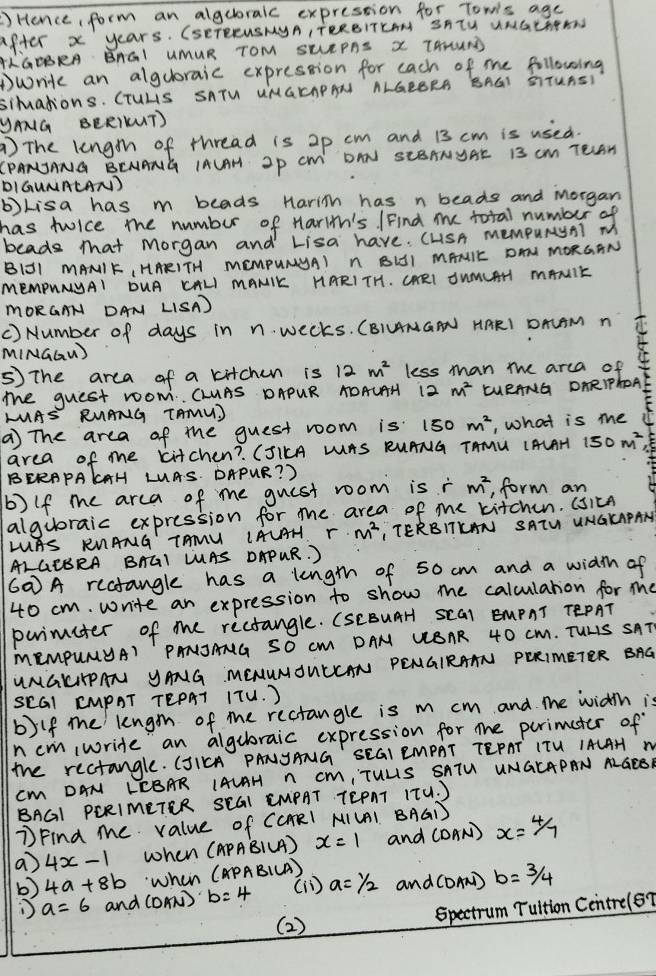 c) Hence, form an algebraic expression for Tom's age
after x years. (SETERUSNYA, TERBITKAN SATU UNGKAPAN
ALGEBRA BAGI UMUR TOM SELEPAS x TAHUN)
4) Write an algebraic expression for each of the following
situations. (TULIS SATU UNGKAPAN ALGEBRA BAGI SITUASI
YANG BERIKUT)
a) The length of thread is 2p cm and 13 cm is used.
(PANJANG BENANG IALAH 2p cm DAN SEBANYAK 13 cm TELAH
DIGUNAKAN)
b) Lisa has m beads Harith has n beads and Morgan
has twice the number of Harith's. Find the total number of
beads that Morgan and Lisa have. (LISA MEMPUNYAI M
BIJI MANIK, HARITH MEMPUNYAI n BIJI MANIK DAN MORGAN
MEMPUNYAI DUA KALI MANIK HARITH. CARI JUMLAH MANIK
MORGAN DAN LISA)
c) Number of days in n weeks. (BILANGAN HARI DALAM n
MINGGU)
5) The area of a kitchen is 12 m² less than the area of
the guest room. (LUAS DAPUR ADALAH 12 m² KURANG DARIPADA
LUAS RUANG TAMU)
a) The area of the guest room is 150 m², what is the
area of the kitchen? (JIKA LUAS RUANG TAMU IALAH 150 m²,
BERAPAKAH LUAS DAPUR?)
b) If the area of the guest room is r m², form an
algebraic expression for the area of the kitchen. (JIKA
LUAS RUANG TAMU IALAH r m², TERBITKAN SATU UNGKAPAN
ALGEBRA BAGI LUAS DAPUR.)
6a) A rectangle has a length of 50 cm and a width of
40 cm. Write an expression to show the calculation for the
perimeter of the rectangle. (SEBUAH SEGI EMPAT TEPAT
MEMPUNYAI PANJANG 50 cm DAN LEBAR 40 cm. TULIS SAT
UNGKAPAN YANG MENUNJUKKAN PENGIRAAN PERIMETER BAG
SEGI EMPAT TEPAT ITU.)
b) If the length of the rectangle is m cm and the width is
n cm, write an algebraic expression for the perimeter of
the rectangle. (JIKA PANJANG SEGI EMPAT TEPAT ITU IALAH m
cm DAN LEBAR IALAH n cm, TULIS SATU UNGKAPAN ALGEBR
BAGI PERIMETER SEGI EMPAT TEPAT ITU.)
7) Find the value of (CARI NILAI BAGI)
a) 4x - 1 when (APABILA) x = 1 and (DAN) x = 4/7
b) 4a + 8b when (APABILA)
i) a = 6 and (DAN) b = 4 (ii) a = 1/2 and (DAN) b = 3/4
(2)
Spectrum Tuition Centre (ST